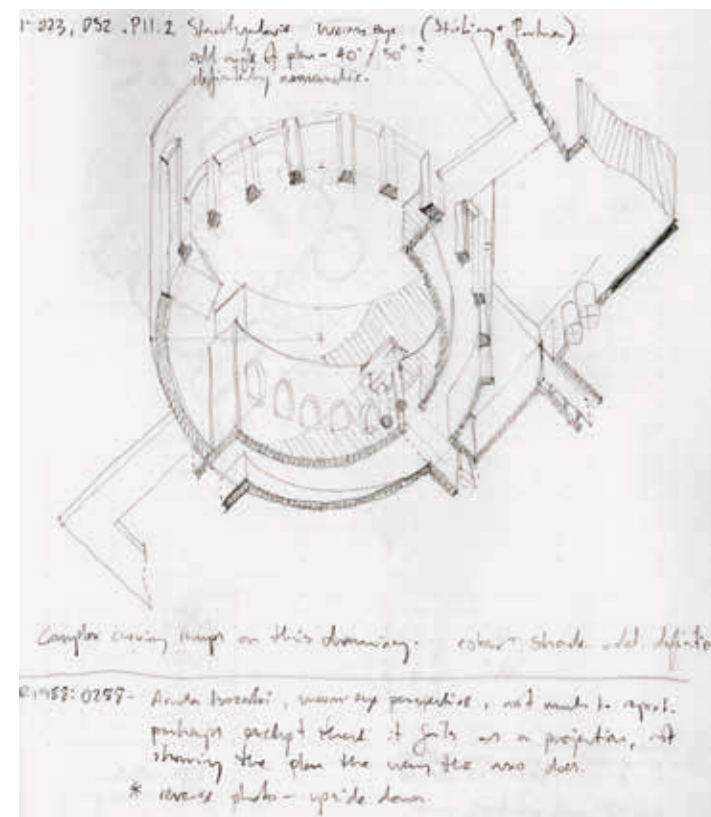 023, 052 .P11.2 Staatsgalerie worms eye (Stirling + Partner)
odd angle of plan - 40°/50° ?
definitely axonometric.
Complex curving ramps on this drawing. colour + shade add
1988:0259- worm eye perspective, not much to report.
perhaps except that it fails as a projection, not
showing the plan the way the axo does.
* reverse photo - upside down.